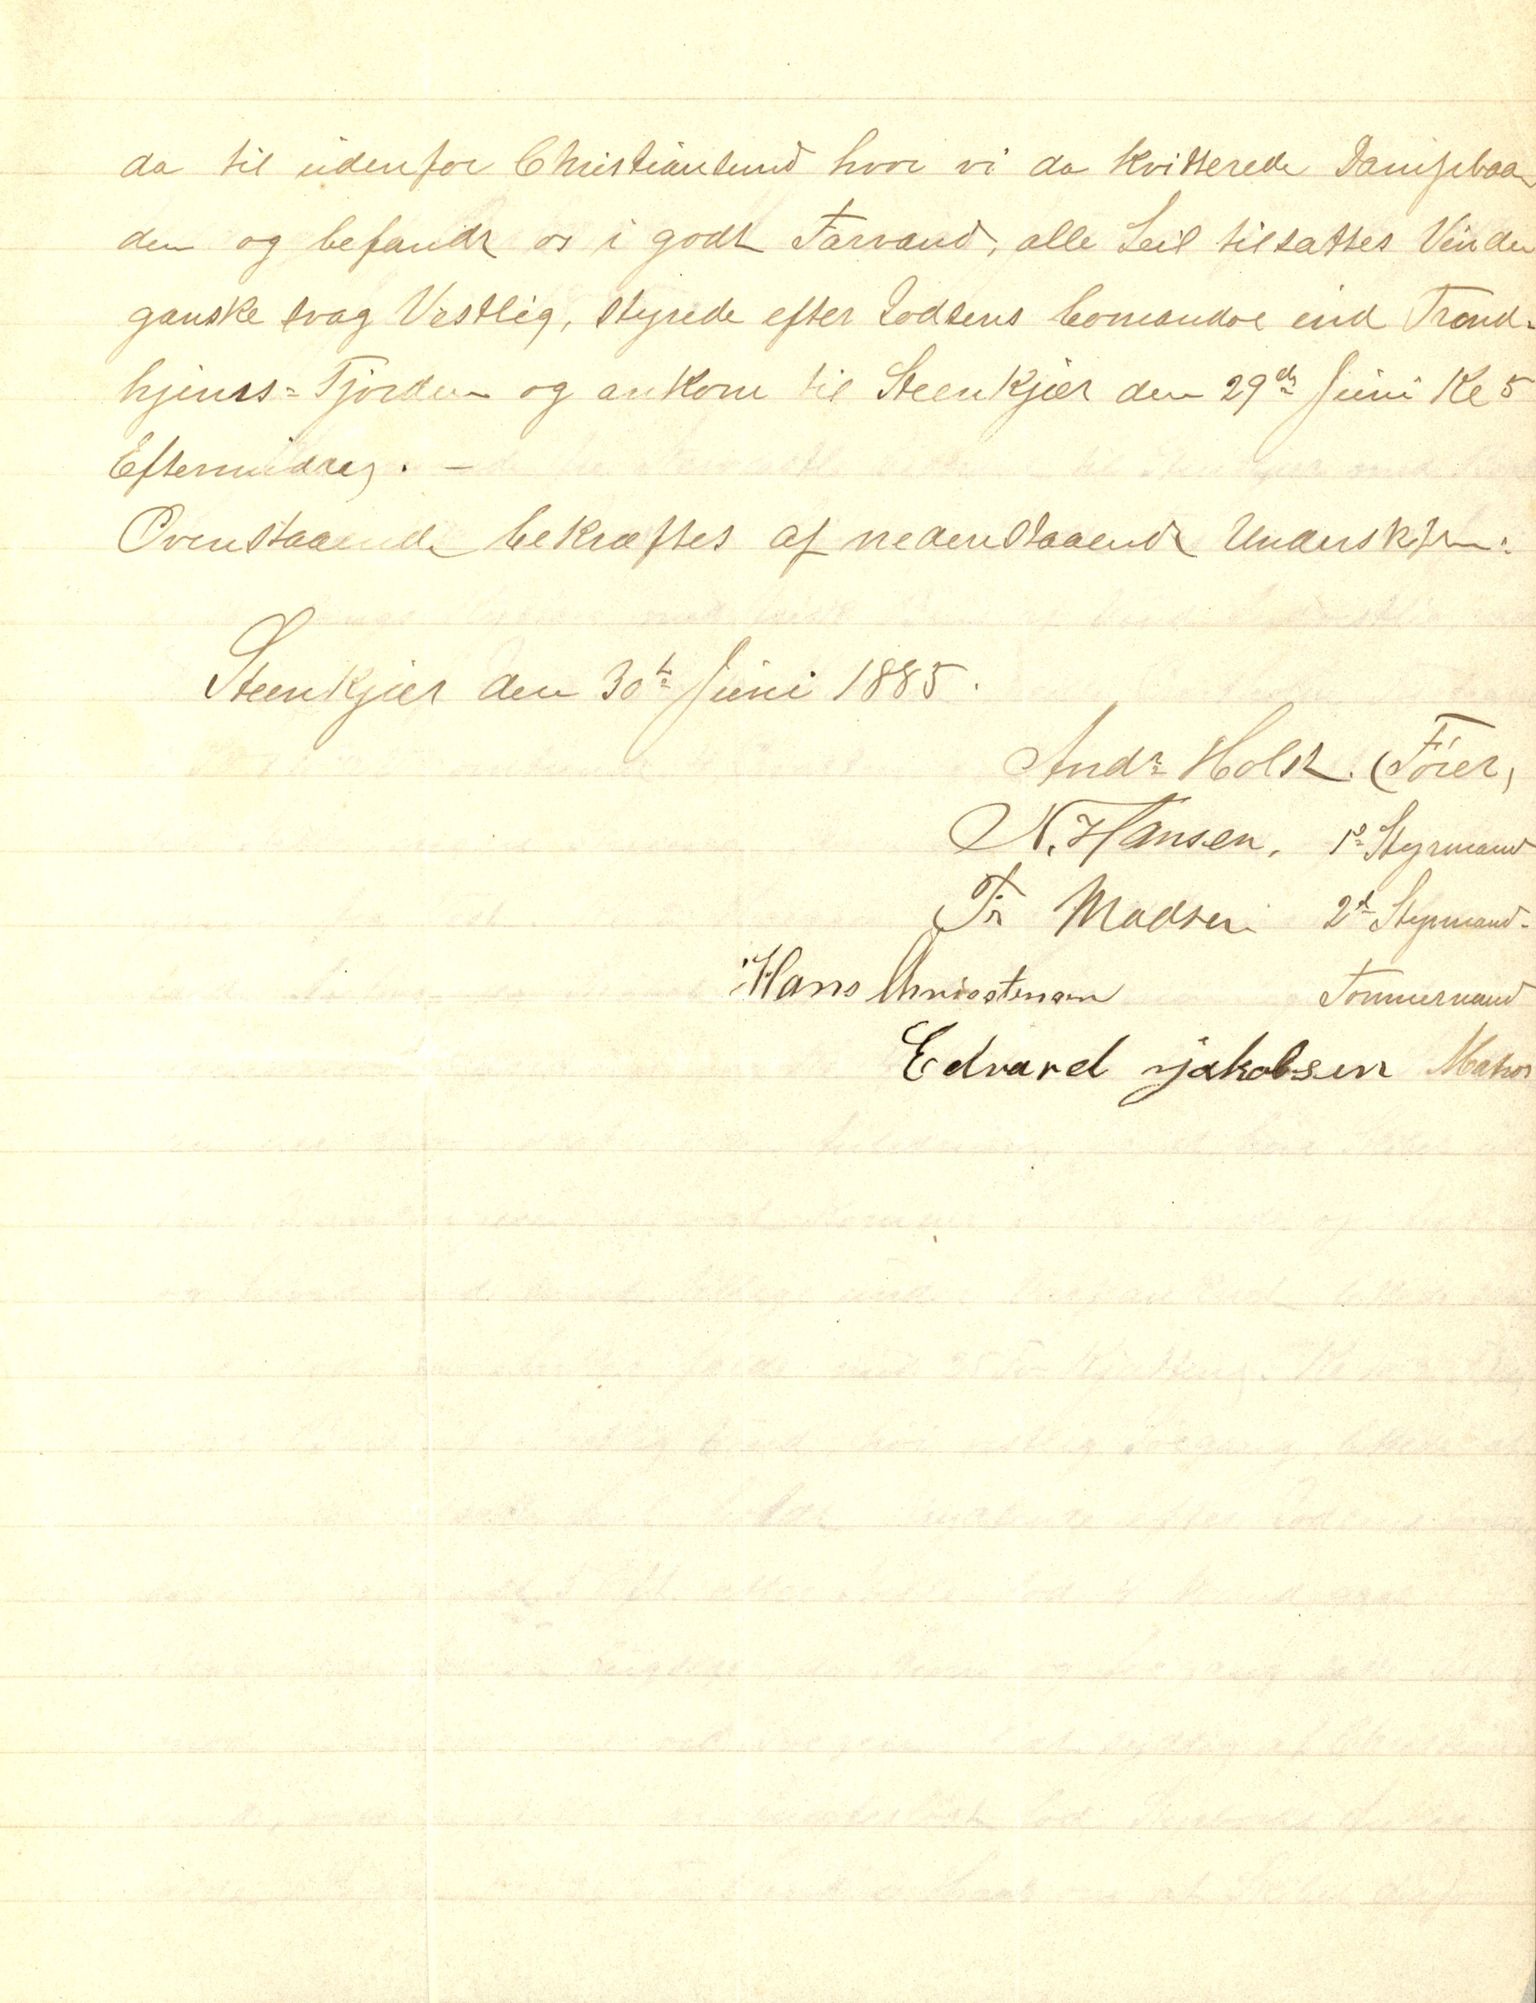 da til udenfor Christiansund hvor vi da kvitterede Dampbaa
den og befandt os i godt Farvand, alle Seil tilsattes Vinden
ganske svag Vestlig, styrede efter Lodsens Comandoe ind Trond-
hjems=Fjorden og ankom til Steenkjær den 29de Juni Kl 5
Eftermidag. -
Ovenstaaende bekræftes af nedenstaaende
Steenkjær den 30te Juni 1885.
Andr Holst. (Fører)
N. Hansen. 1ste Styrmand
Fr Madsen 2den Styrmand-
Hans Christensen Tømmermand
Edvard Jakobsen Matros